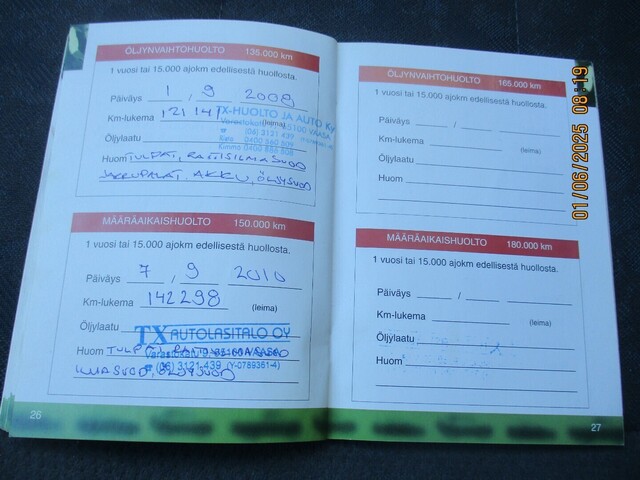 ÖLJYNVAIHTOHUOLTO 135.000 km
1 vuosi tai 15.000 ajokm edellisestä huollosta.
Päiväys 1 , 9 2009
Km-lukema 121141 (leima)
TX-HUOLTO JA AUTO Ky
65100 VAASA
(06) 3121 439
Öljylaatu
Huom TULPAT, RAITISILMASUOD
JARRUPALAT, AKKU, ÖLJYSUOD
MÄÄRÄAIKAISHUOLTO 150.000 km
1 vuosi tai 15.000 ajokm edellisestä huollosta.
Päiväys 7 , 9 2010
Km-lukema 142298 (leima)
Öljylaatu
TX AUTOLASITALO OY
Huom TULPAT,
(06) 3121-439 (Y-0789351-4)
ILMASUOD, ÖLJYSUOD
26
ÖLJYNVAIHTOHUOLTO 165.000 km
1 vuosi tai 15.000 ajokm edellisestä huollosta.
Päiväys /
Km-lukema
(leima)
Öljylaatu
Huom
MÄÄRÄAIKAISHUOLTO 180.000 km
1 vuosi tai 15.000 ajokm edellisestä huollosta.
Päiväys /
Km-lukema
(leima)
Öljylaatu
Huom
27
01/06/2025 08:19